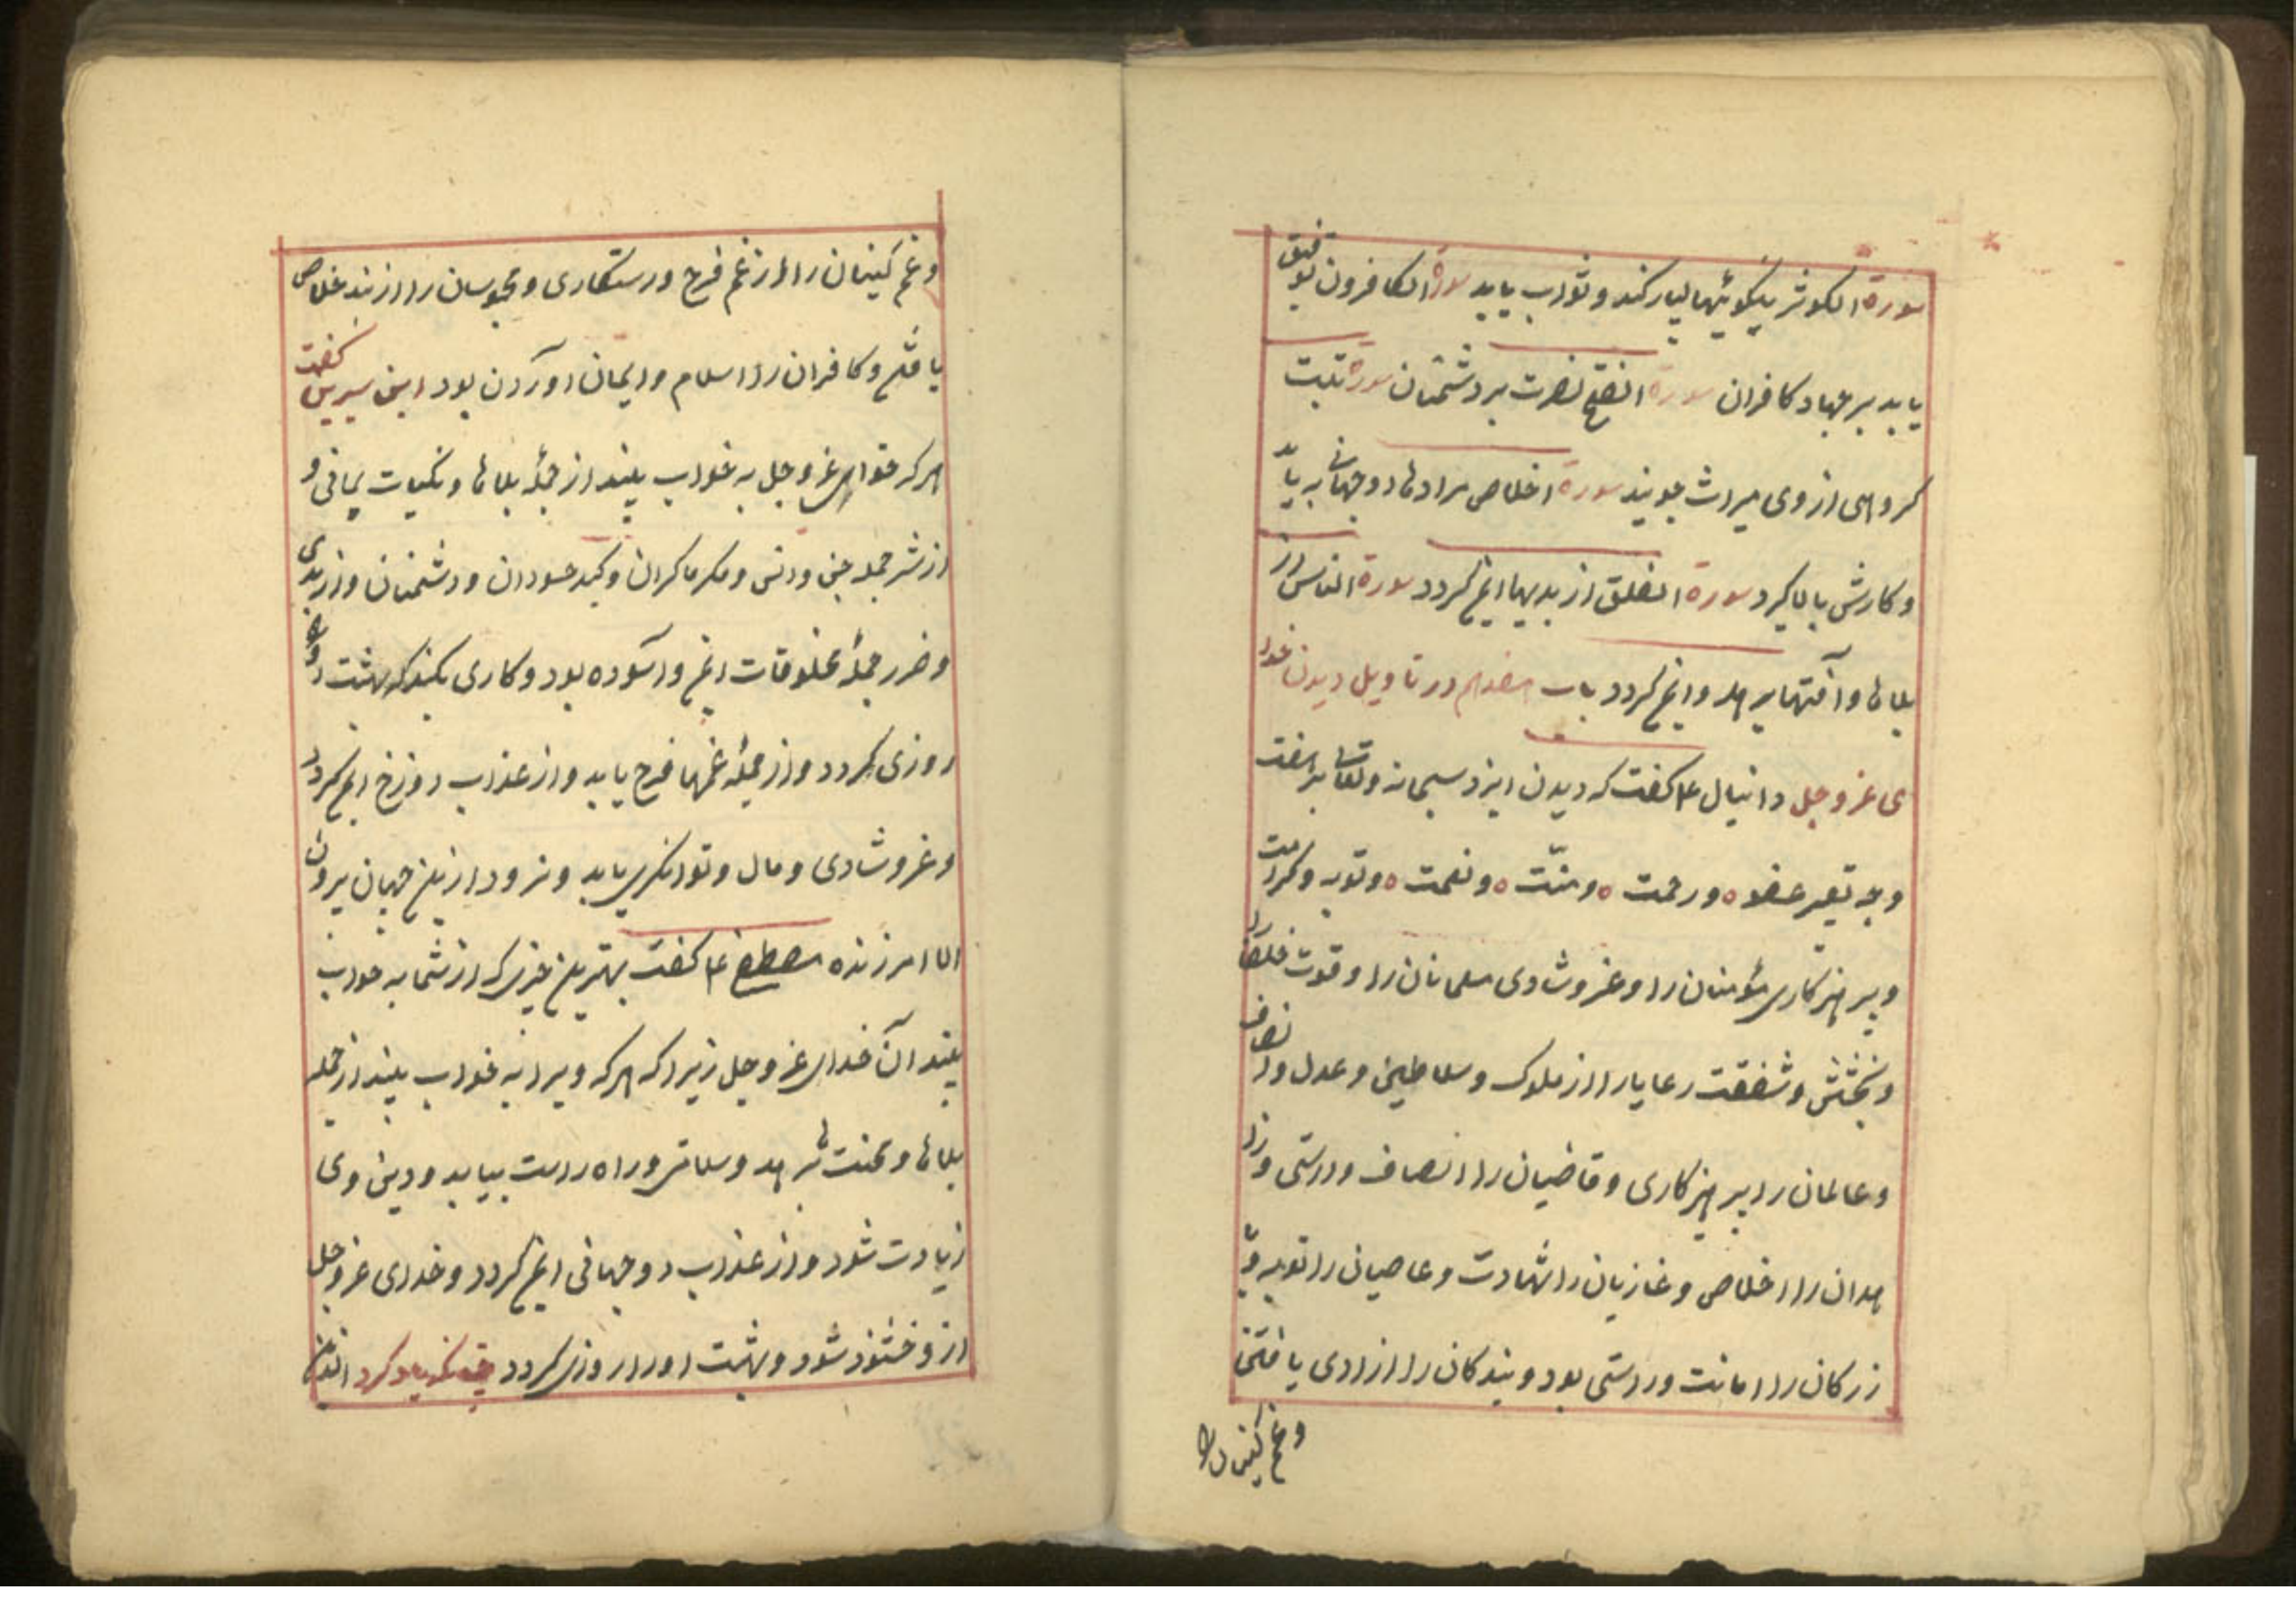 سورة الکوثر نیکوئیها بسیار کند و ثواب یابد سورة الکافرون توفیق
یابد بر جهاد کافران سورة الفتح نصرت بر دشمنان سورة تبت
کروهی از وی میراث جویند سورة اخلاص مرادها دوجهانی بیابد
و کارش بالا کیرد سورة الفلق از بدیها ایمن کردد سورة الناس از
بلاها و آفتها برهد و ایمن کردد باب هفدهم در تاویل دیدن خدا
ی عز و جل دانیال ع م کفت که دیدن ایزد سبحانه و تعالی بر هفت
وجه تعبیر عفو ه و رحمت ه و منّت ه و نعمت ه و توبه و کرامت
و پرهیزکاری مؤمنان را و عز و شادی مسلمانان را و قوت
و بخشش و شفقت رعایا را از ملوک و سلاطین و عدل و انصاف
و عالمان را پرهیزکاری و قاضیان را انصاف و راستی و زا
هدان را اخلاص و غازیان را شهادت و عاصیان را توبه و
زرکان را امانت و راستی بود و بندکان را ازادی یافتن
و غم کینان را
و غم کینان را از غم فرج و رستکاری و محبوسان را از بند خلاص
یافتن و کافران را اسلام و ایمان اوردن بود ابن سیرین کفت
هر که خدای عز و جل به خواب بیند از جمله بلاها و نکبات
از شر جمله جن و انس و مکر ماکران و کید حسودان و دشمنان و از بدی
و ضرر جمله مخلوقات ایمن و آسوده بود و کاری بکند که بهشت
روزی کردد و از جمله غمها فرج یابد و از عذاب دوزخ ایمن کردد
و عز و شادی و مال و توانکری یابد و نرود ازین جهان بیرون
الا امرزیده مصطفی ع م کفت بهترین چیزی که از شما به خواب
بیند آن خدای عز و جل زیرا که هر که ویرا به خواب بیند از جمله
بلاها و محنت ها برهد و سلامتی و راه راست بیابد و دین وی
زیادت شود و از عذاب دوجهانی ایمن کردد و خدای عز و جل
از و خشنود شود و بهشت اورا روزی کردد یاد کرد